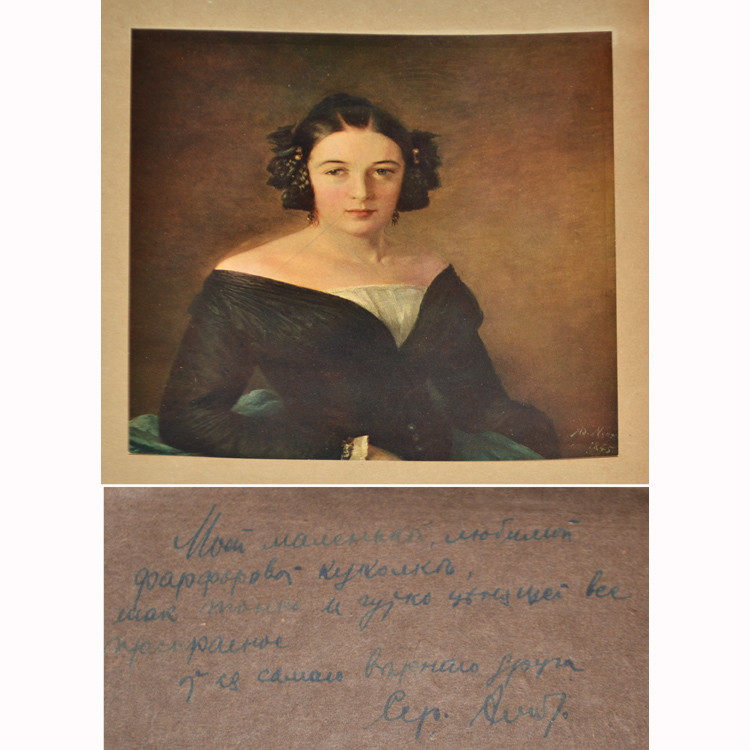 Моей маленькой, любимой
фарфоровой куколкѣ,
так тонко и чутко цѣнящей все
прекрасное
от ея самаго вѣрнаго друга
Сер.